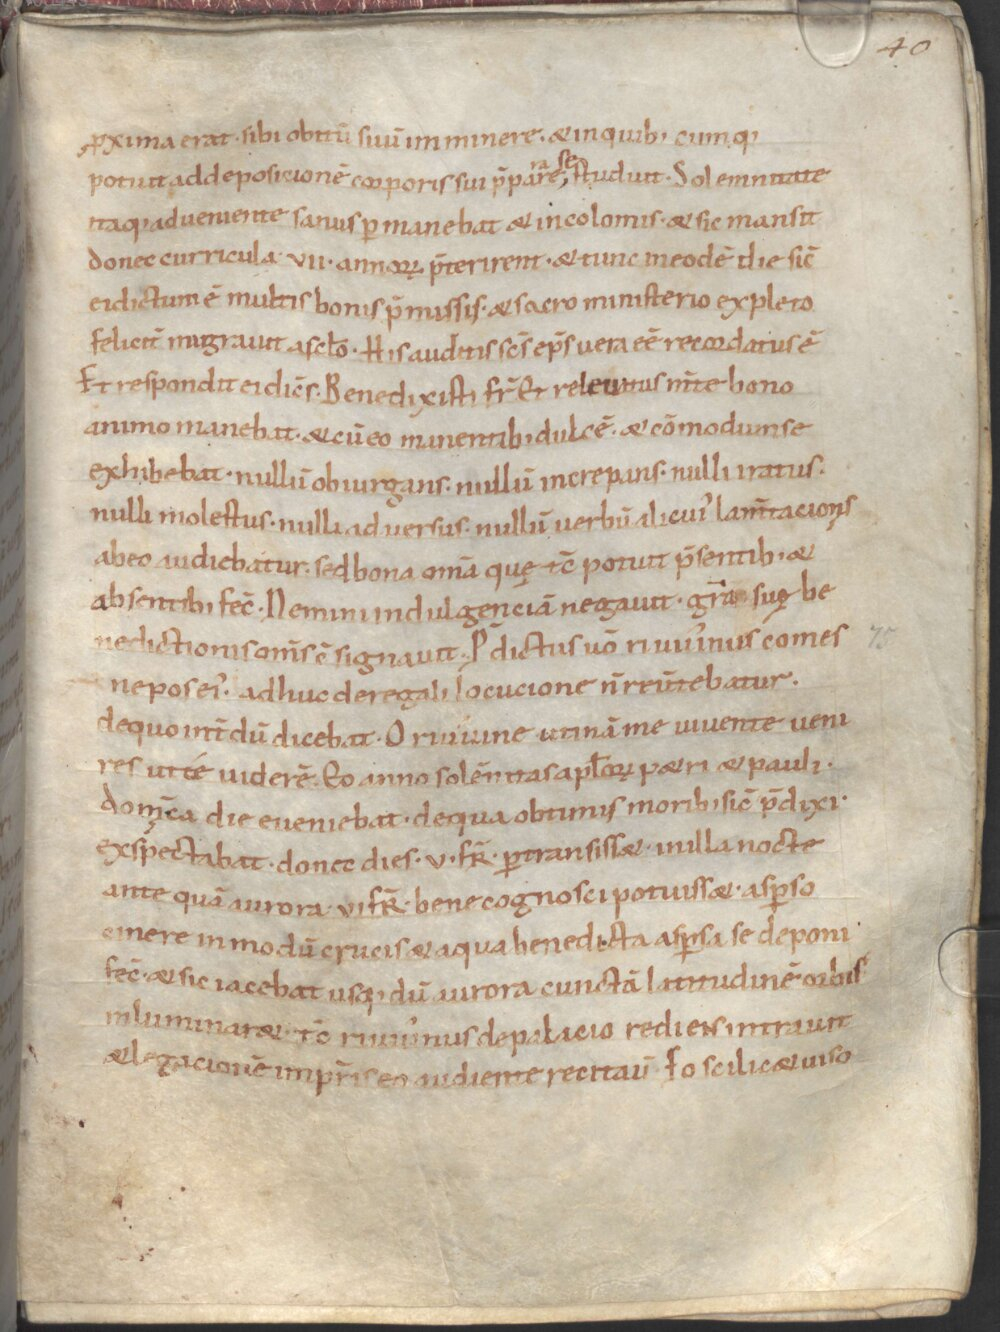 40
ꝓxima erat · sibi obitū suū imminere · & inquib; cumq;
potuit addeposicionē corporis sui p̄parare se studuit · Solemnitate
itaq; adveniente sanus ꝑmanebat & incolomis · & sic mansit
donec curricula · vii · annoꝝ p̄terirent · & tunc ineodē die sic̄
ei dictum ē multis bonis p̄missis · & sacro ministerio expleto
felicit̄ migravit ascl̄o · His auditis sc̄s ep̄s vera eē recordatus ē
Et respondit ei dicēs · Benedixisti fr̄ Et relevatus m̄te bono
animo manebat · & cū eo manentib; dulcē · & cōmodum se
exhibebat · nullū obiurgans · nullū increpans · nulli iratus ·
nulli molestus · nulli adversus · nullū verbū alicui' lam̄tacionis
ab eo audiebatur · sed bona om̄a quę tc̄ potuit p̄sentib; &
absentib; fec̄ · Nemini indulgenciā negavit · gr̄a suę be
nedictionis om̄s c̄signavit · P̄dictus ū̄o rivuinus comes
75
nepos ei' · adhuc deregali locucione n̄ revertebatur ·
dequo int̄dū dicebat · O rivuine utinā me vivente veni
res ut te viderē · Eo anno solēnitas apl̄oꝝ p&ri & pauli ·
dominica die eveniebat · dequa obtimis morib; sic̄ p̄dixi ·
exspectabat · donec dies · v · fr̄ · ꝑtransiss& · in illa nocte
ante quā aurora vi fr̄ · bene cognosci potuiss& · aspso
cinere in modū crucis & aqua benedicta aspsa se deponi
fec̄ · & sic iacebat usq; dū aurora cunctā latitudinē orbis
inluminar& · tc̄ rivuinus depalacio rediens intravit
& legacionē imp̄ris eo audiente recitavit Eo scilic& viso